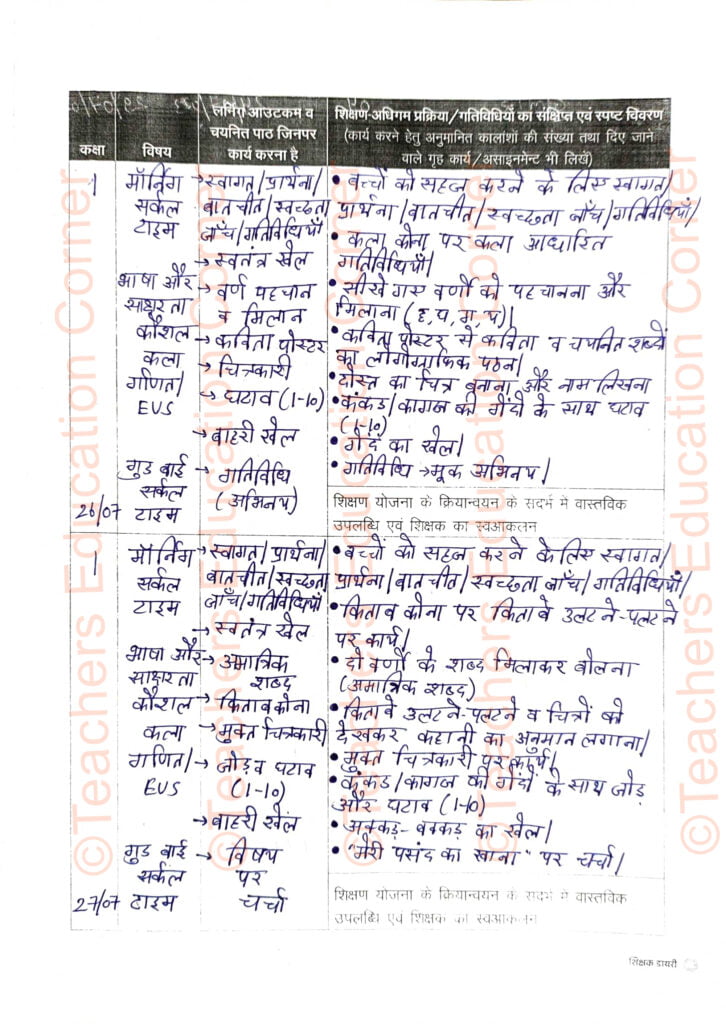 कक्षा
विषय
लर्निंग आउटकम व
चयनित पाठ जिनपर
कार्य करना है
शिक्षण-अधिगम प्रक्रिया/गतिविधियों का संक्षिप्त एवं स्पष्ट विवरण
(कार्य करने हेतु अनुमानित कालांशों की संख्या तथा दिए जाने
वाले गृह कार्य/असाइनमेंट भी लिखें)
1
मॉर्निंग
सर्कल
टाइम
→ स्वागत/प्रार्थना/
बातचीत/स्वच्छता
जाँच/गतिविधियाँ
→ स्वतंत्र खेल
• बच्चों को सहज करने के लिए स्वागत/
प्रार्थना/बातचीत/स्वच्छता जाँच/गतिविधियाँ/
• कला कोना पर कला आधारित
गतिविधियाँ।
भाषा और
साक्षरता
कौशल
→ वर्ण पहचान
व मिलान
→ कविता पोस्टर
• सीखे गए वर्णों को पहचानना और
मिलाना
• कविता पोस्टर से कविता व चयनित शब्दों
का लोगोग्राफिक पठन।
कला
→ चित्रकारी
• दोस्त का चित्र बनाना और नाम लिखना
गणित/
EVS
→ घटाव (1-10)
→ बाहरी खेल
• कंकड़/कागज की गेंदों के साथ घटाव
(1-10)
• गेंद का खेल।
गुड बाई
सर्कल
टाइम
→ गतिविधि
(अभिनय)
• गतिविधि → मूक अभिनय।
26/07
शिक्षण योजना के क्रियान्वयन के संदर्भ में वास्तविक
उपलब्धि एवं शिक्षक का स्वआकलन
1
मॉर्निंग
सर्कल
टाइम
→ स्वागत/प्रार्थना/
बातचीत/स्वच्छता
जाँच/गतिविधियाँ
→ स्वतंत्र खेल
• बच्चों को सहज करने के लिए स्वागत/
प्रार्थना/बातचीत/स्वच्छता जाँच/गतिविधियाँ/
• किताब कोना पर किताबे उलटने-पलटने
पर कार्य।
भाषा और
साक्षरता
कौशल
→ अमात्रिक
शब्द
→ किताब कोना
• दो वर्णों के शब्द मिलाकर बोलना
(अमात्रिक शब्द)
• किताबे उलटने-पलटने व चित्रों को
देखकर कहानी का अनुमान लगाना।
कला
→ मुक्त चित्रकारी
• मुक्त चित्रकारी पर कार्य।
गणित/
EVS
→ जोड़ व घटाव
(1-10)
→ बाहरी खेल
• कंकड़/कागज की गेंदों के साथ जोड़
और घटाव (1-10)
• अक्कड़-बक्कड़ का खेल।
गुड बाई
सर्कल
टाइम
→ विषय
पर
चर्चा
• "मेरी पसंद का खाना" पर चर्चा।
27/07
शिक्षण योजना के क्रियान्वयन के संदर्भ में वास्तविक
उपलब्धि एवं शिक्षक का स्वआकलन
शिक्षक डायरी
©Teachers Education Corner
©Teachers Education Corner
©Teachers Education Corner
©Teachers Education Corner